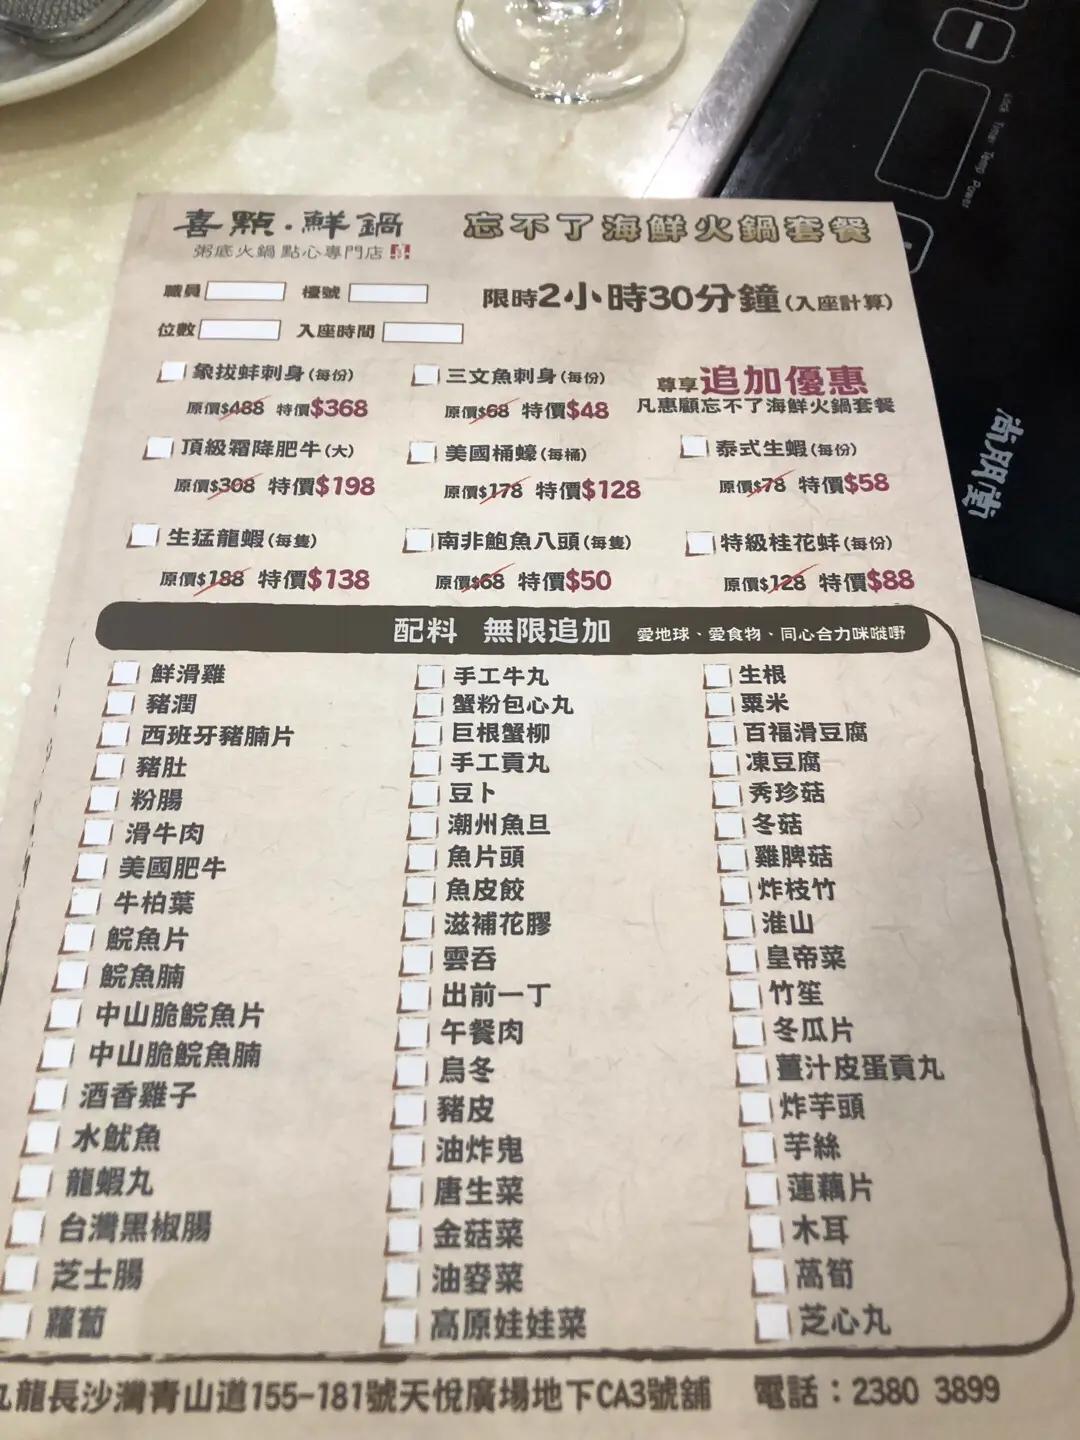 喜點·鮮鍋
粥底火鍋 點心專門店
忘不了海鮮火鍋套餐
職員 檯號
限時2小時30分鐘(入座計算)
位數 入座時間
尊享追加優惠
凡惠顧忘不了海鮮火鍋套餐
象拔蚌刺身(每份)
原價$488 特價$368
三文魚刺身(每份)
原價$68 特價$48
頂級霜降肥牛(大)
原價$308 特價$198
美國桶蠔(每桶)
原價$178 特價$128
泰式生蝦(每份)
原價$78 特價$58
生猛龍蝦(每隻)
原價$188 特價$138
南非鮑魚八頭(每隻)
原價$68 特價$50
特級桂花蚌(每份)
原價$128 特價$88
配料 無限追加 愛地球、愛食物、同心合力咪嘥嘢
鮮滑雞
豬潤
西班牙豬腩片
豬肚
粉腸
滑牛肉
美國肥牛
牛柏葉
鯇魚片
鯇魚腩
中山脆鯇魚片
中山脆鯇魚腩
酒香雞子
水魷魚
龍蝦丸
台灣黑椒腸
芝士腸
蘿蔔
手工牛丸
蟹粉包心丸
巨根蟹柳
手工貢丸
豆卜
潮州魚旦
魚片頭
魚皮餃
滋補花膠
雲吞
出前一丁
午餐肉
烏冬
豬皮
油炸鬼
唐生菜
金菇菜
油麥菜
高原娃娃菜
生根
粟米
百福滑豆腐
凍豆腐
秀珍菇
冬菇
雞脾菇
炸枝竹
淮山
皇帝菜
竹笙
冬瓜片
薑汁皮蛋貢丸
炸芋頭
芋絲
蓮藕片
木耳
萵筍
芝心丸
九龍長沙灣青山道155-181號天悅廣場地下CA3號舖 電話：2380 3899
尚朋堂
Lock Timer Temp Power